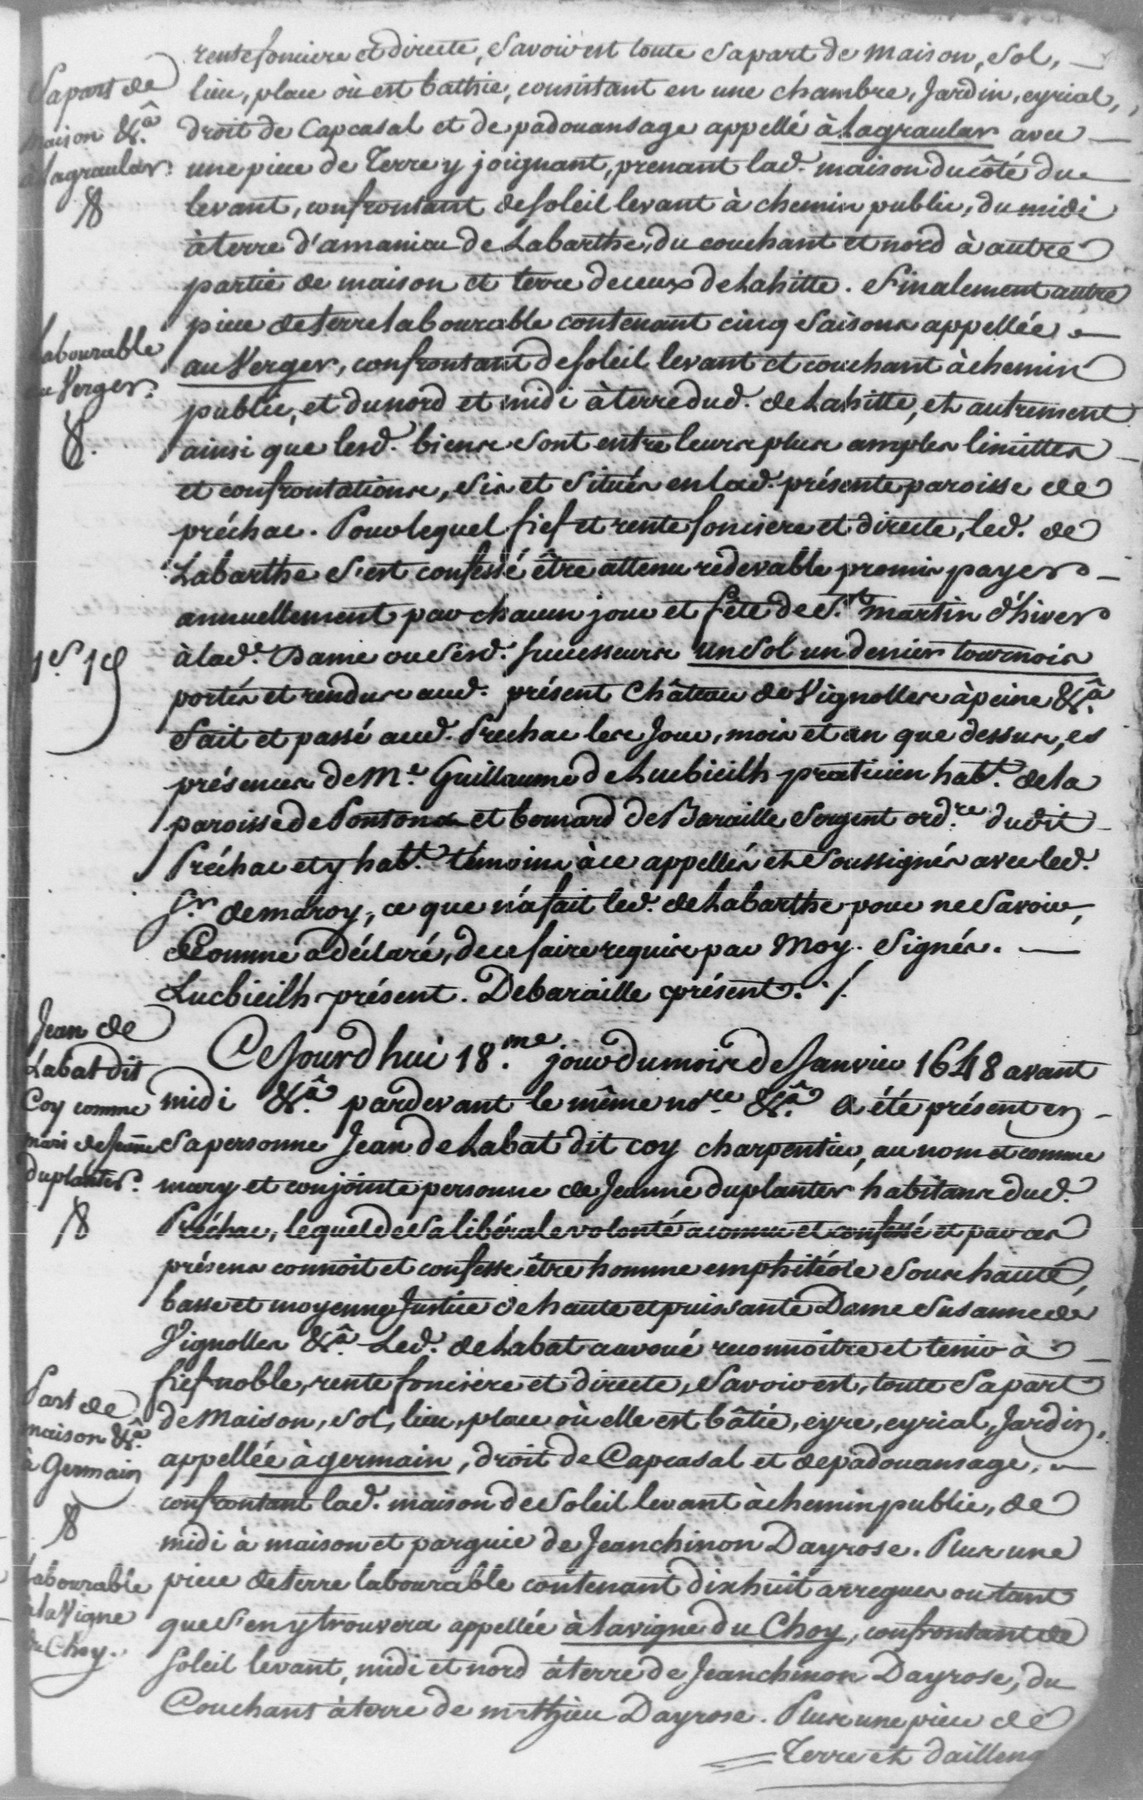 rente fonciere et directe, Savoir est toute sa part de maison, Sol,
Sa part de
maison &a.
à Lagraular.
lieu, place où est bathie, consistant en une chambre, Jardin, eyrial,
droit de Capcasal et de padouansage appellé à Lagraular avec
une piece de Terre y joignant, prenant lad. maison du côté du
levant, confrontant de soleil levant à chemin public, du midi
à terre d'amanieu de Labarthe, du couchant et nord à autre
partie de maison et terre de ceux de Lahitte. Finalement autre
Labourable
au Verger.
piece de terre labourable contenant cinq Saisons appellée
au Verger, confrontant de soleil levant et couchant à chemin
public, et du nord et midi à terre dud. de Lahitte, et autrement
ainsi que lesd. biens sont entre leurs plus amples limittes
et confrontations, Sis et Situés en lad. présente paroisse de
préchac. Pour lequel fief et rente fonciere et directe, led. de
Labarthe s'est confessé être attenu redevable promis payer
annuellement par chacun jour et fête de St. martin d'hiver
1s 1d
à lad.e Dame ou Sesd. successeurs un Sol un denier tournois
portés et rendus aud. présent Château de Vignolles à peine &a.
Fait et passé aud. Prechac les Jour, mois et an que dessus, es
présences de Me. Guillaume de Lucbieilh praticien habt. de la
paroisse de Pontonx et bernard de Baraille Sergent ordre. dudit
Préchac et y habt. témoins à ce appellés et Soussignés avec led.
Sr. demaroy, ce que n'a fait led. de Labarthe pour ne Savoir,
Comme a déclaré, de ce faire requis par Moy. Signés.
Lucbieilh présent. Debaraille présent. /.
Jean de
Labat dit
Coy comme
mari de Jeanne
duplantes.
Cejourd'hui 18.me jour du mois de Janvier 1648 avant
midi &a. pardevant le même nore. &a. a été présent en
sa personne Jean de Labat dit coy charpentier, au nom et comme
mary et conjointe personne de Jeanne duplantes habitans dud.
Préchac, lequel de Sa libérale volonté a connu et confessé et par ces
présens connoit et confesse être homme emphitéote Sous haute,
basse et moyenne Justice de haute et puissante Dame Susanne de
Vignolles &a. Led. de Labat a avoué reconnoître et tenir à
fief noble, rente fonciere et directe, Savoir est, toute Sa part
Part de
maison &a.
à Germain
de Maison, sol, lieu, place où elle est bâtie, eyre, eyrial, Jardin,
appellée à germain, droit de Capcasal et de padouansage,
confrontant lad. maison de Soleil levant à chemin public, de
midi à maison et parguie de Jeanchinon Dayrose. Plus une
Labourable
à la Vigne
du Choy.
piece de terre labourable contenant dix huit arregues ou tant
que S'en y trouvera appellée à la vigne du Choy, confrontant de
Soleil levant, midi et nord à terre de Jeanchinon Dayrose, du
Couchant à terre de mathieu Dayrose. Plus une piece de
Terre et